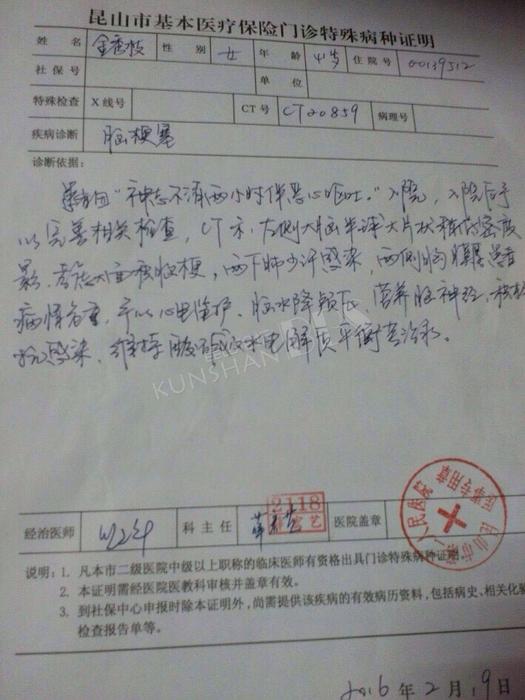 昆山市基本医疗保险门诊特殊病种证明
姓名 金香枝 性别 女 年龄 41岁 住院号 00139512
社保号 单位
特殊检查 X线号 CT号 CT20859 病理号
疾病诊断 脑梗塞
诊断依据：
患者因"神志不清两小时伴恶心呕吐。"入院，入院后予
以完善相关检查，CT示：右侧大脑半球大片状稍低密度
影，考虑大面积脑梗，两下肺少许感染，两侧胸膜
病情危重，予以心电监护、脑水降颅压、营养脑神经、
抗感染、维持酸碱及水电解质平衡等治疗。
KUNSHAN
经治医师 科主任 2118 医院盖章
昆山市第一人民医院
医务专用章
说明：1. 凡本市二级医院中级以上职称的临床医师有资格出具门诊特殊病种证明
2. 本证明需经医院医教科审核并盖章有效。
3. 到社保中心申报时除本证明外，尚需提供该疾病的有效病历资料，包括病史、相关化验
检查报告单等。
2016年2月19日